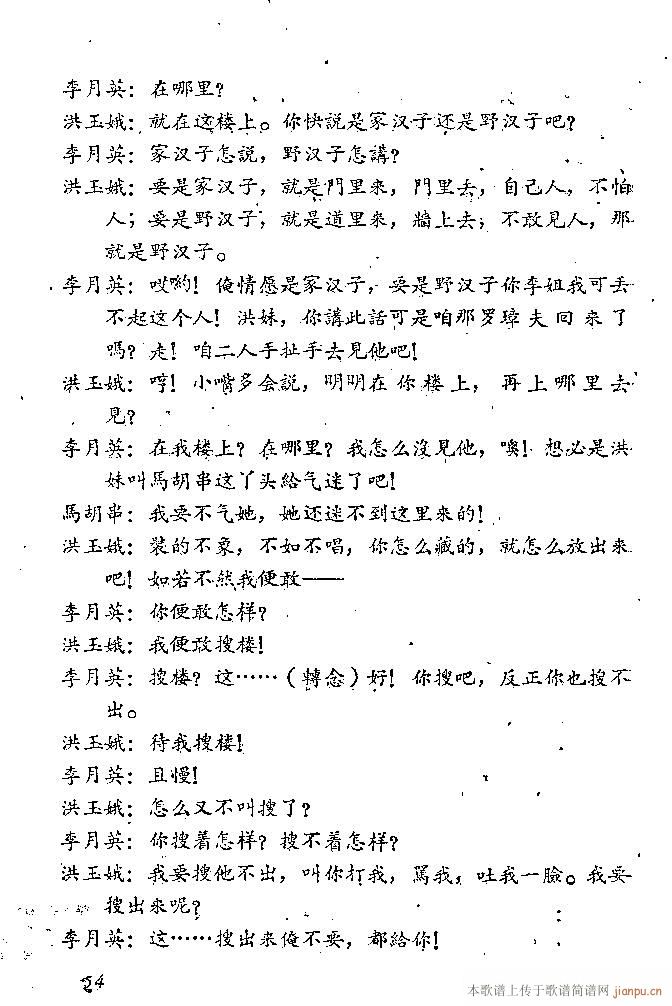 李月英：在哪里？
洪玉娥：就在这楼上。你快説是家汉子还是野汉子吧？
李月英：家汉子怎説，野汉子怎講？
洪玉娥：要是家汉子，就是門里来，門里去，自己人，不怕
人；要是野汉子，就是道里来，牆上去；不敢見人，那
就是野汉子。
李月英：哎哟！俺情愿是家汉子，要是野汉子你李姐我可丢
不起这个人！洪妹，你講此話可是咱那罗璋夫回来了
嗎？走！咱二人手扯手去見他吧！
洪玉娥：哼！小嘴多会説，明明在你楼上，再上哪里去
見？
李月英：在我楼上？在哪里？我怎么沒見他，噢！想必是洪
妹叫馬胡串这丫头給气迷了吧！
馬胡串：我要不气她，她还迷不到这里来的！
洪玉娥：装的不象，不如不唱，你怎么藏的，就怎么放出来
吧！如若不然我便敢——
李月英：你便敢怎样？
洪玉娥：我便敢搜楼！
李月英：搜楼？这……（轉念）好！你搜吧，反正你也搜不
出。
洪玉娥：待我搜楼！
李月英：且慢！
洪玉娥：怎么又不叫搜了？
李月英：你搜着怎样？搜不着怎样？
洪玉娥：我要搜他不出，叫你打我，駡我，吐我一臉。我要
搜出来呢？
李月英：这……搜出来俺不要，都給你！
24
本歌谱上传于歌谱简谱网
jianpu.cn